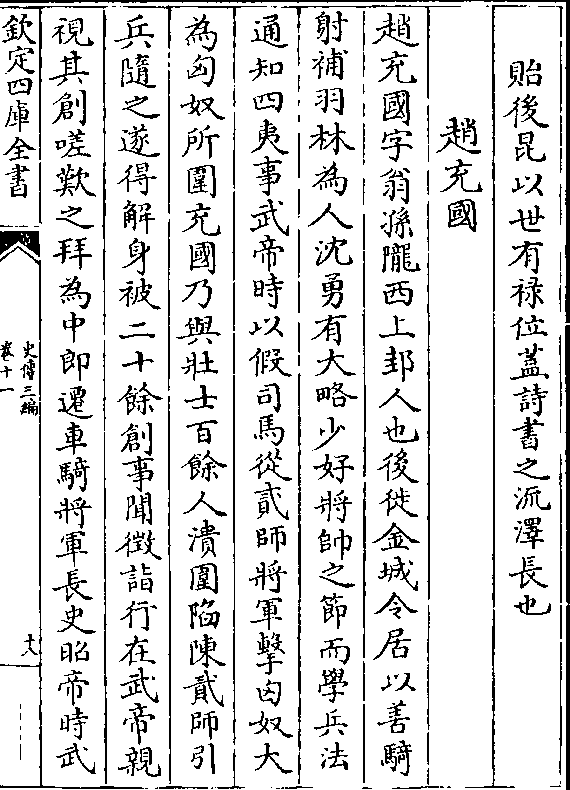 貽後昆以世有祿位蓋詩書之流澤長也
趙充國
趙充國字翁孫隴西上邽人也後徙金城令居以善騎
射補羽林為人沈勇有大略少好將帥之節而學兵法
通知四夷事武帝時以假司馬從貳師將軍擊匈奴大
為匈奴所圍充國乃與壯士百餘人潰圍陷陳貳師引
兵隨之遂得解身被二十餘創事聞徵詣行在武帝親
視其創嗟歎之拜為中郎遷車騎將軍長史昭帝時武
欽定四庫全書
史傳三編
卷十一
十八